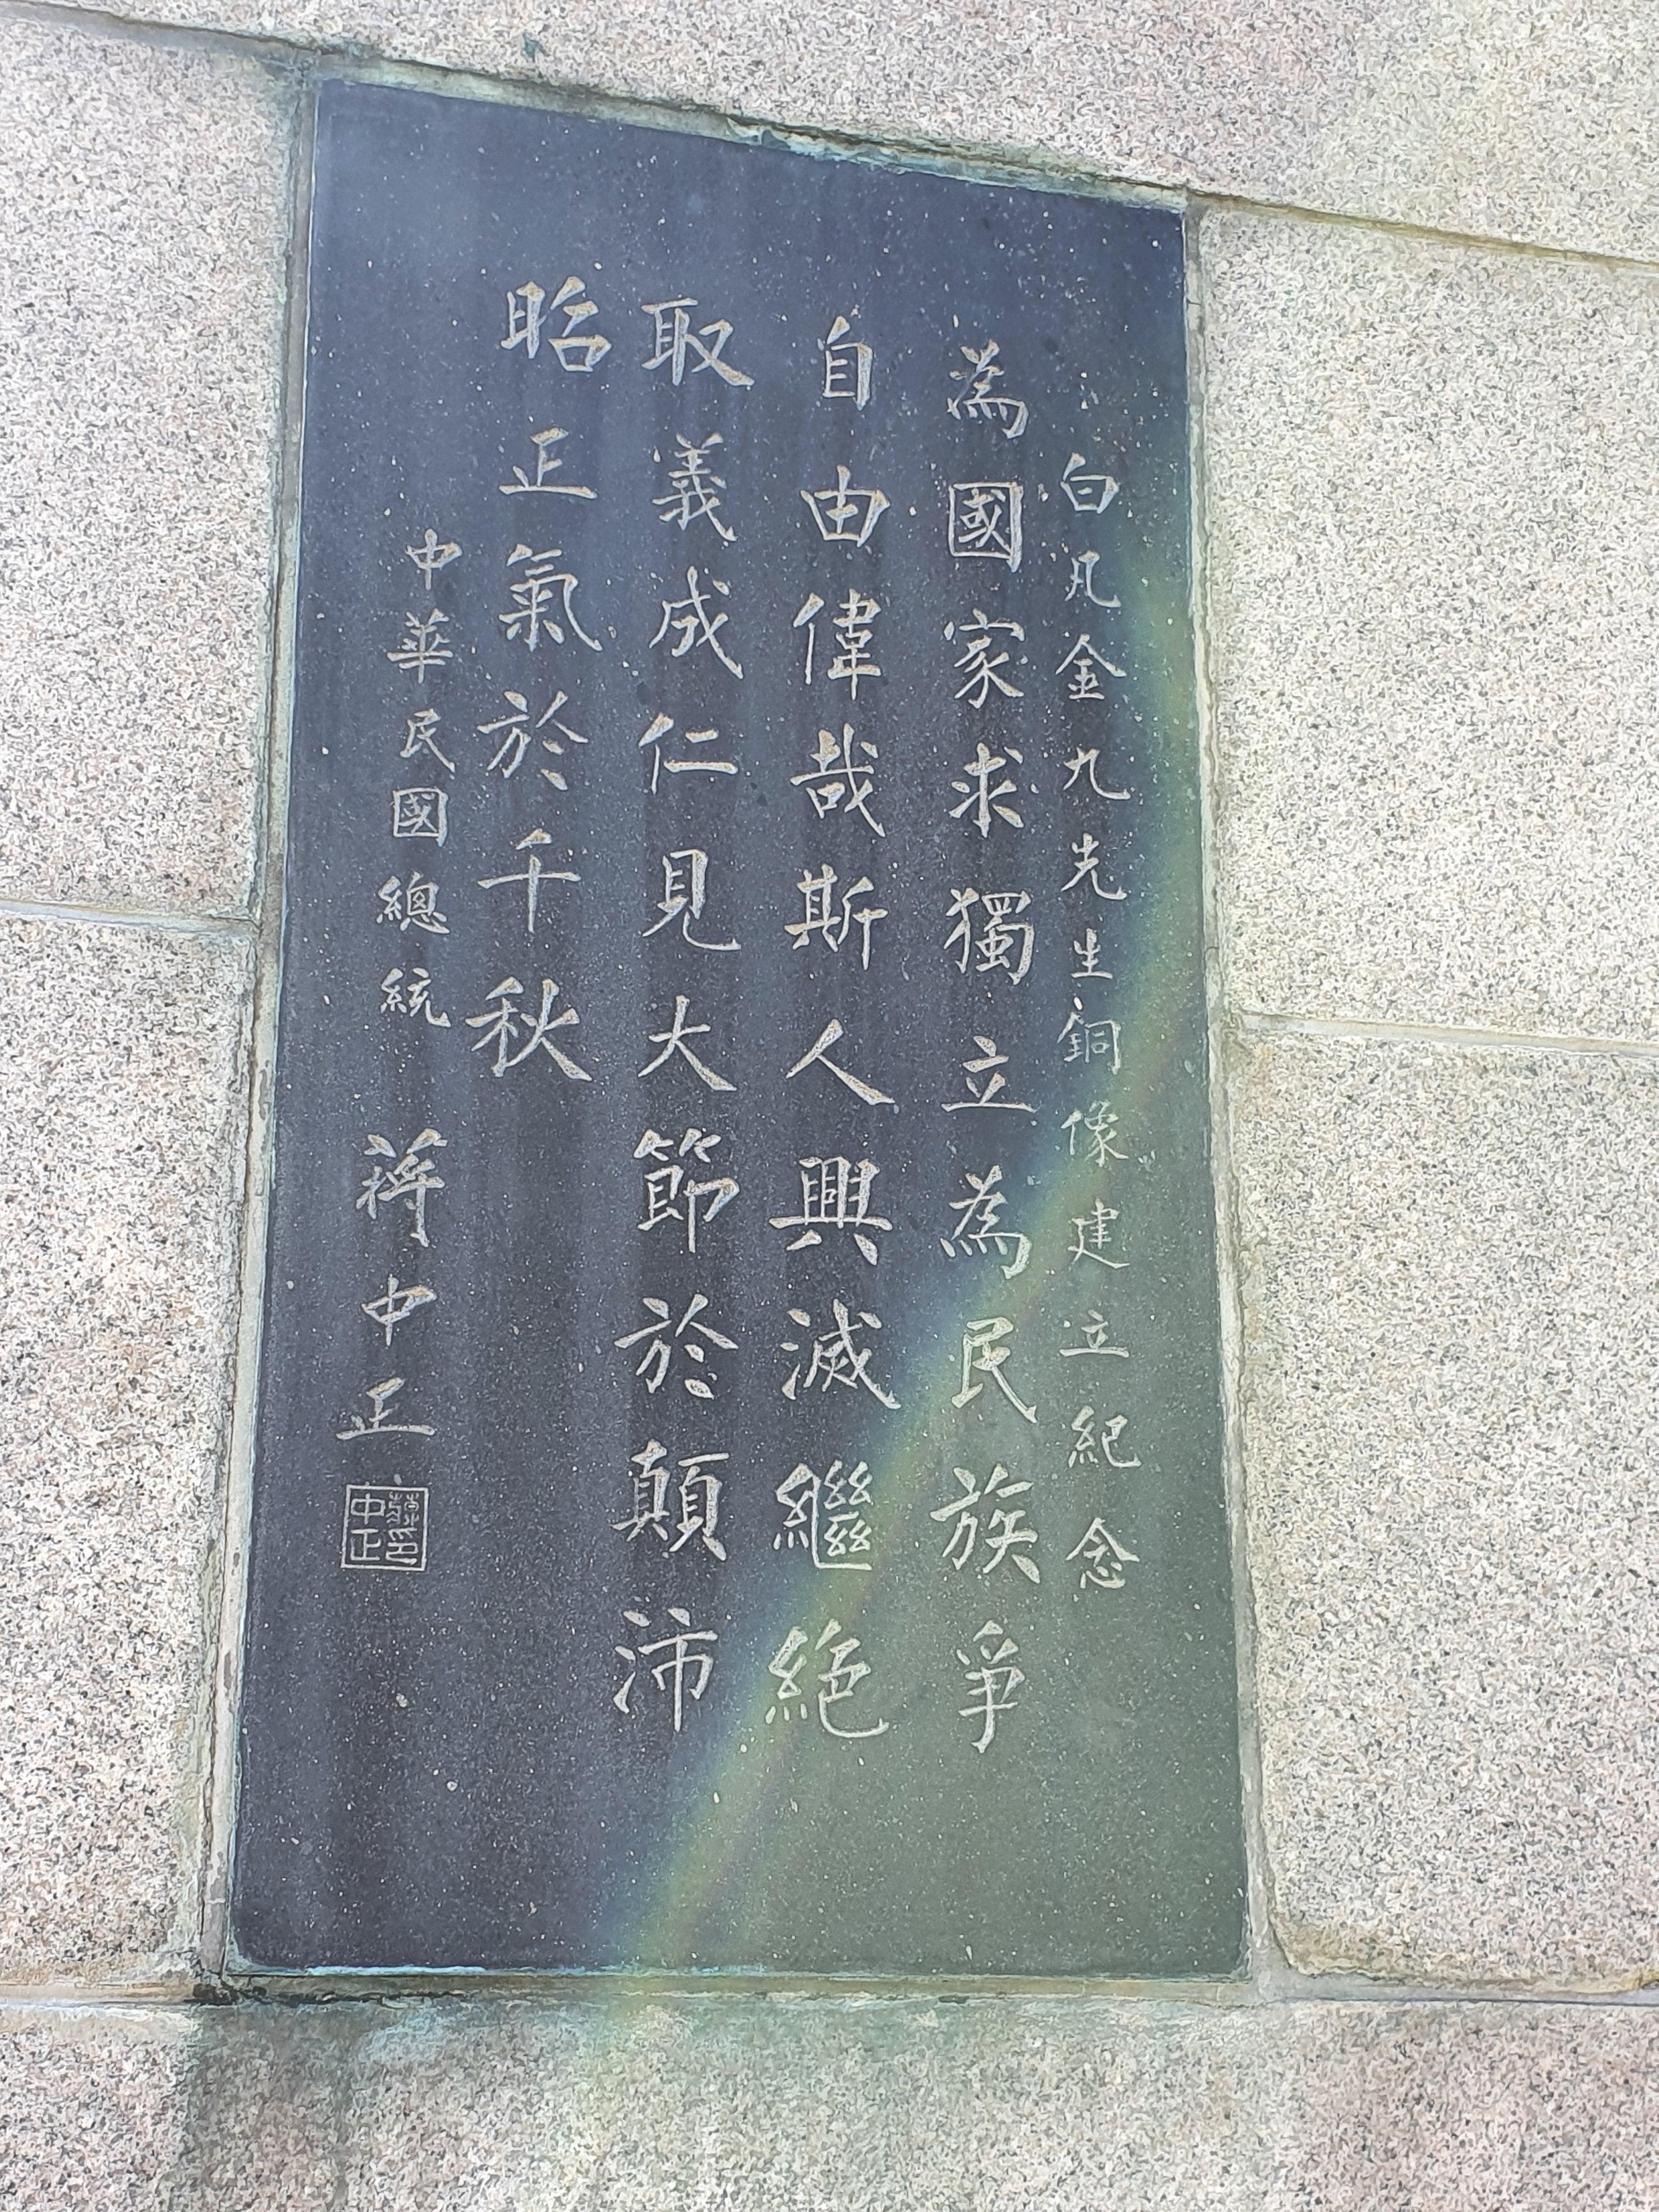 白凡金九先生銅像建立紀念
為國家求獨立為民族爭
自由偉哉斯人興滅繼絕
取義成仁見大節於顛沛
昭正氣於千秋
中華民國總統 蔣中正
蔣中正印